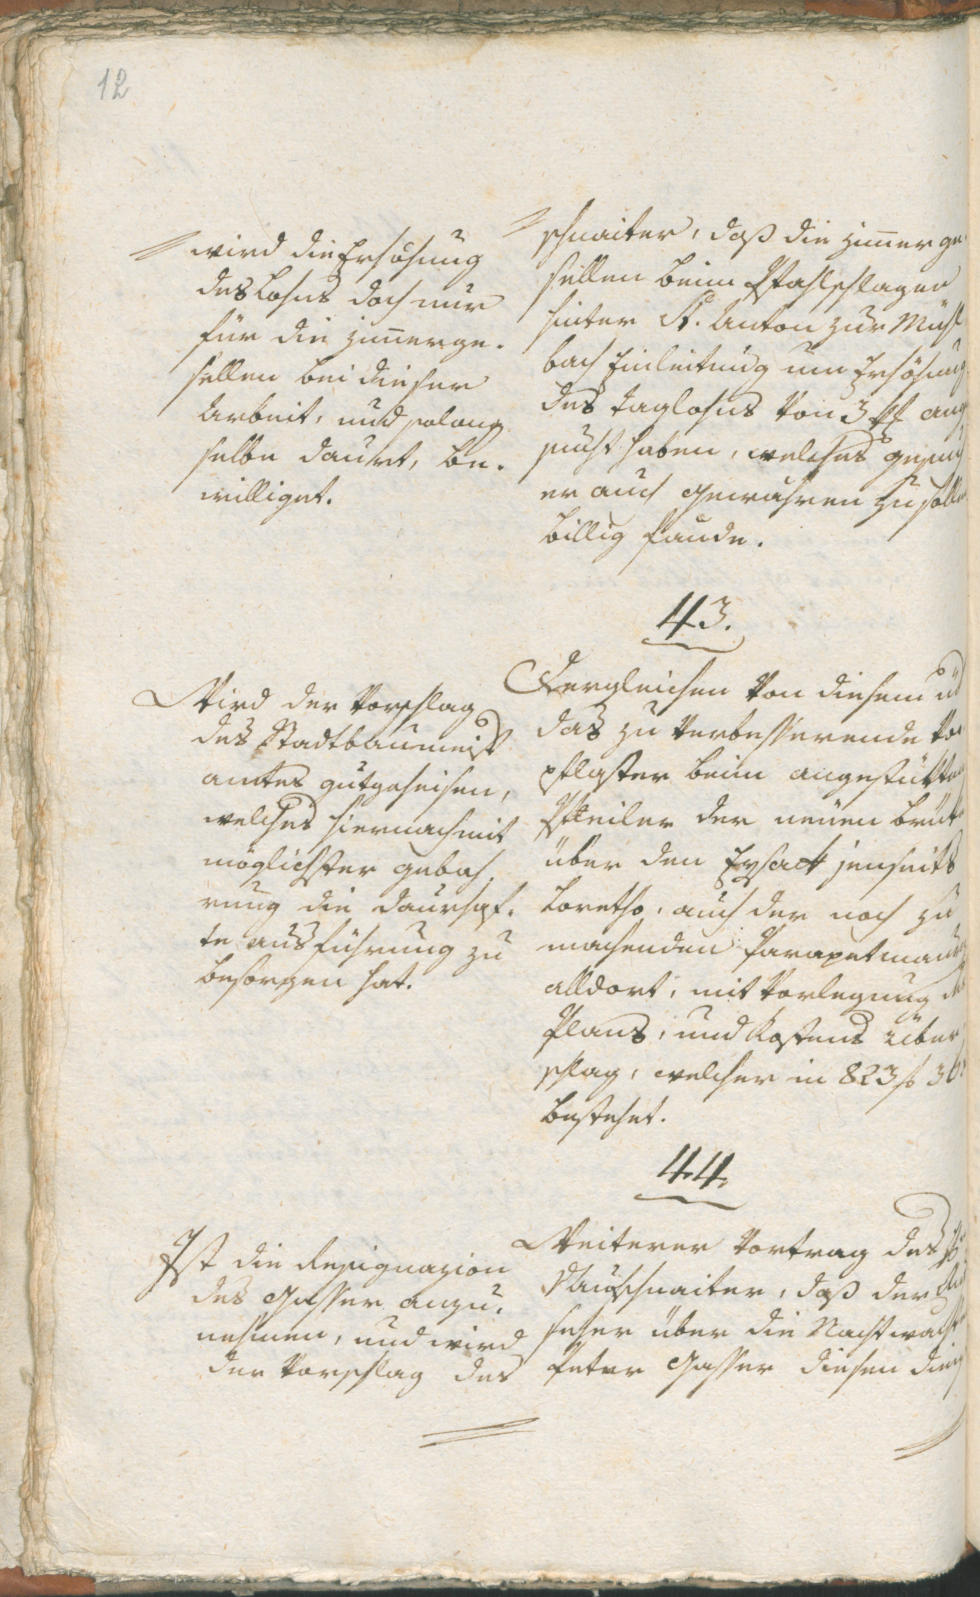 12
wird die Erhöhung
des Lohns doch nur
für die Zim̄erge-
sellen bei dieser
Arbeit, und solang
selbe dauret, be-
williget.
schnaiter, daß die Zim̄erge
sellen beim Pfahlschlagen
hinter St. Anton zur Mühl
bach Einleitung um Erhöhung
des Taglohns von 3 xr ang
sucht haben, welches
er auch gewähren zu sollen
billig fande.
43.
Wird der Vorschlag
des Stadtbaumeist
amtes gutgeheisen,
welches hiernach mit
möglichster gebah-
rung die daurhaf-
te ausführung zu
besorgen hat.
Dergleichen von diesem üb
das zu verbesserende Vor
pflaster beim angestükten
Pfeiler der neuen Brük
über den Eysack jenseits
Loretho, auch der noch zu
machenden Parapetmaur
alldort, mit Vorlegung de
Plans, und Kostens Über
schlag, welcher in 823 f 36
bestehet.
44.
Ist die Resignazion
des Gasser anzu-
nehmen, und wird
der Vorschlag des
Weiterer Vortrag des
Nauschnaiter, daß der
seher über die Nachtwach
Peter Gasser diesen Dien